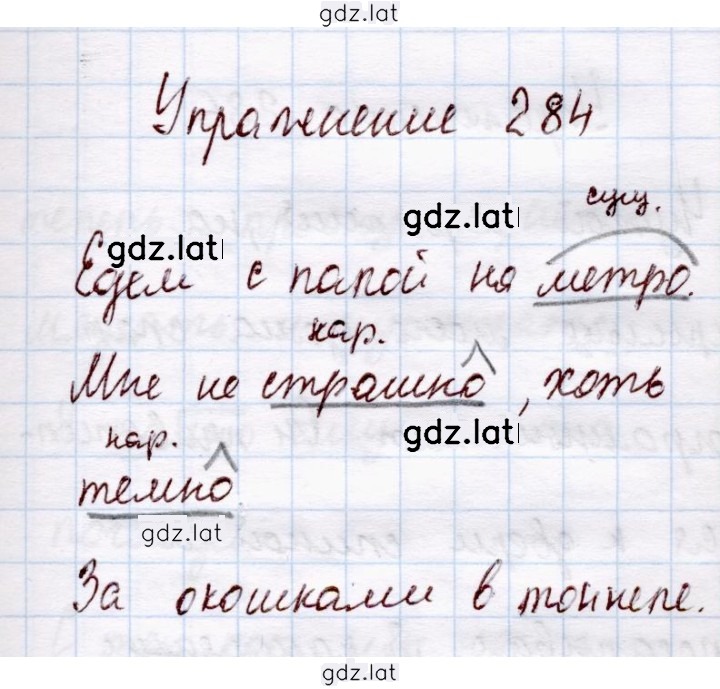 gdz.lat
Упражнение 284
сущ.
gdz.lat
gdz.lat
Едем с папой на метро.
нар.
Мне не страшно, хоть
нар.
gdz.lat
темно.
gdz.lat
За окошками в тоннеле.
gdz.lat